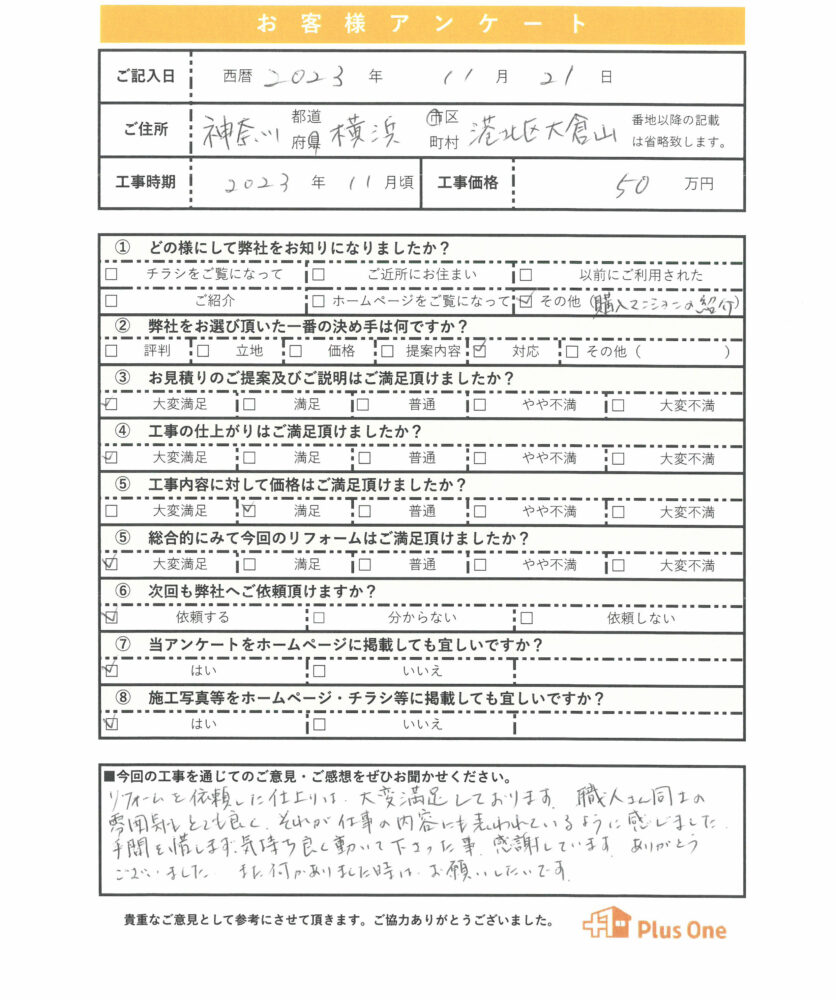 お客様アンケート
ご記入日 西暦 2023 年 11 月 21 日
ご住所 神奈川 都道府県 横浜 市区町村 港北区大倉山 番地以降の記載は省略致します。
工事時期 2023 年 11 月頃 工事価格 50 万円
① どの様にして弊社をお知りになりましたか？
□ チラシをご覧になって □ ご近所にお住まい □ 以前にご利用された
□ ご紹介 □ ホームページをご覧になって ☑ その他（購入マンションの紹介）
② 弊社をお選び頂いた一番の決め手は何ですか？
□ 評判 □ 立地 □ 価格 □ 提案内容 ☑ 対応 □ その他（ ）
③ お見積りのご提案及びご説明はご満足頂けましたか？
☑ 大変満足 □ 満足 □ 普通 □ やや不満 □ 大変不満
④ 工事の仕上がりはご満足頂けましたか？
☑ 大変満足 □ 満足 □ 普通 □ やや不満 □ 大変不満
⑤ 工事内容に対して価格はご満足頂けましたか？
□ 大変満足 ☑ 満足 □ 普通 □ やや不満 □ 大変不満
⑤ 総合的にみて今回のリフォームはご満足頂けましたか？
☑ 大変満足 □ 満足 □ 普通 □ やや不満 □ 大変不満
⑥ 次回も弊社へご依頼頂けますか？
☑ 依頼する □ 分からない □ 依頼しない
⑦ 当アンケートをホームページに掲載しても宜しいですか？
☑ はい □ いいえ
⑧ 施工写真等をホームページ・チラシ等に掲載しても宜しいですか？
☑ はい □ いいえ
■今回の工事を通じてのご意見・ご感想をぜひお聞かせください。
リフォームを依頼した仕上りは、大変満足しております。職人さん同士の
雰囲気もとても良く、それが仕事の内容にも表われているように感じました。
手間を惜しまず、気持ち良く動いて下さった事、感謝しています。ありがとう
ございました。また何かありました時は、お願いしたいです。
貴重なご意見として参考にさせて頂きます。ご協力ありがとうございました。
Plus One